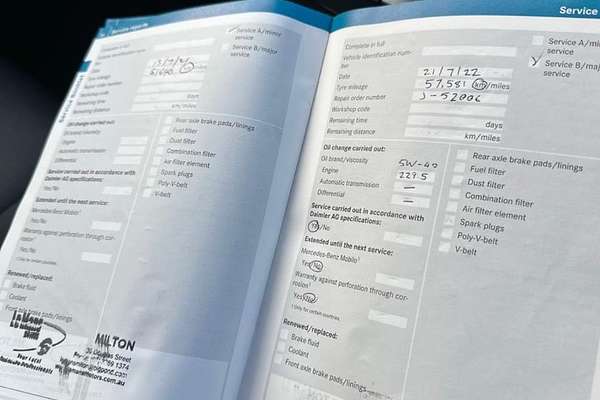 Service reports
Service A/minor
service
Service B/major
service
Complete in full
Date
Tyre mileage
Repair order number
Workshop code
Remaining time
days
Remaining distance
km/miles
Oil change carried out:
Oil brand/viscosity
Engine
Automatic transmission
Differential
Service carried out in accordance with
Daimler AG specifications:
Yes/No
Extended until the next service:
Mercedes-Benz Mobilo¹
Yes/No
Warranty against perforation through cor-
rosion¹
Yes/No
¹ Only for certain countries.
Renewed/replaced:
Brake fluid
Coolant
Front axle brake pads/linings
Rear axle brake pads/linings
Fuel filter
Dust filter
Combination filter
Air filter element
Spark plugs
Poly-V-belt
V-belt
MILTON
Douglas Street
Your Local
Service
Service A/minor
service
Service B/major
service
Complete in full
Vehicle identification num-
ber
Date
21/7/22
Tyre mileage
57,581 km/miles
Repair order number
J-52006
Workshop code
Remaining time
days
Remaining distance
km/miles
Oil change carried out:
Oil brand/viscosity
5W-40
Engine
229.5
Automatic transmission
—
Differential
—
Service carried out in accordance with
Daimler AG specifications:
Yes/No
Extended until the next service:
Mercedes-Benz Mobilo¹
Yes/No
Warranty against perforation through cor-
rosion¹
Yes/No
¹ Only for certain countries.
Renewed/replaced:
Brake fluid
Coolant
Front axle brake pads/linings
Rear axle brake pads/linings
Fuel filter
Dust filter
Combination filter
Air filter element
Spark plugs
Poly-V-belt
V-belt